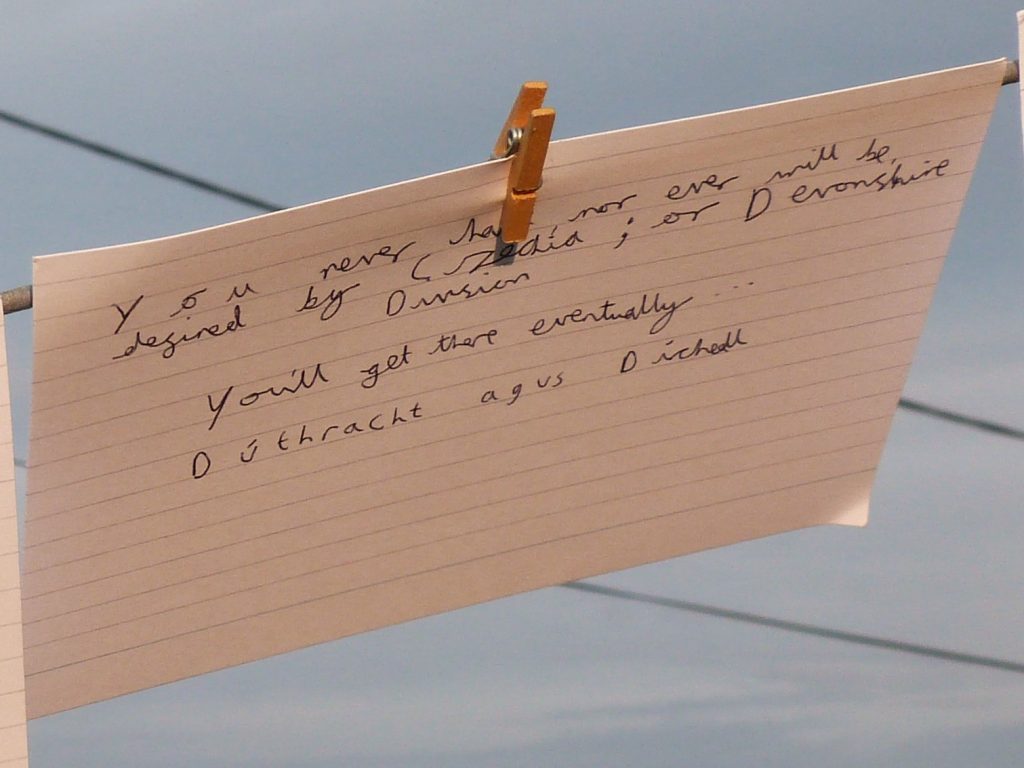 You never ha , nor ever will be,
desired by Czechia ; or Devonshire
Division
You'll get there eventually ...
Dúthracht agus Díchell